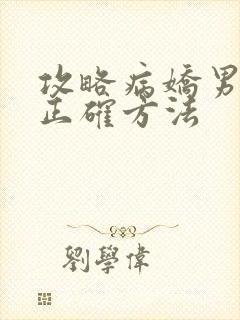 攻略病嬌男
正確方法
劉學偉